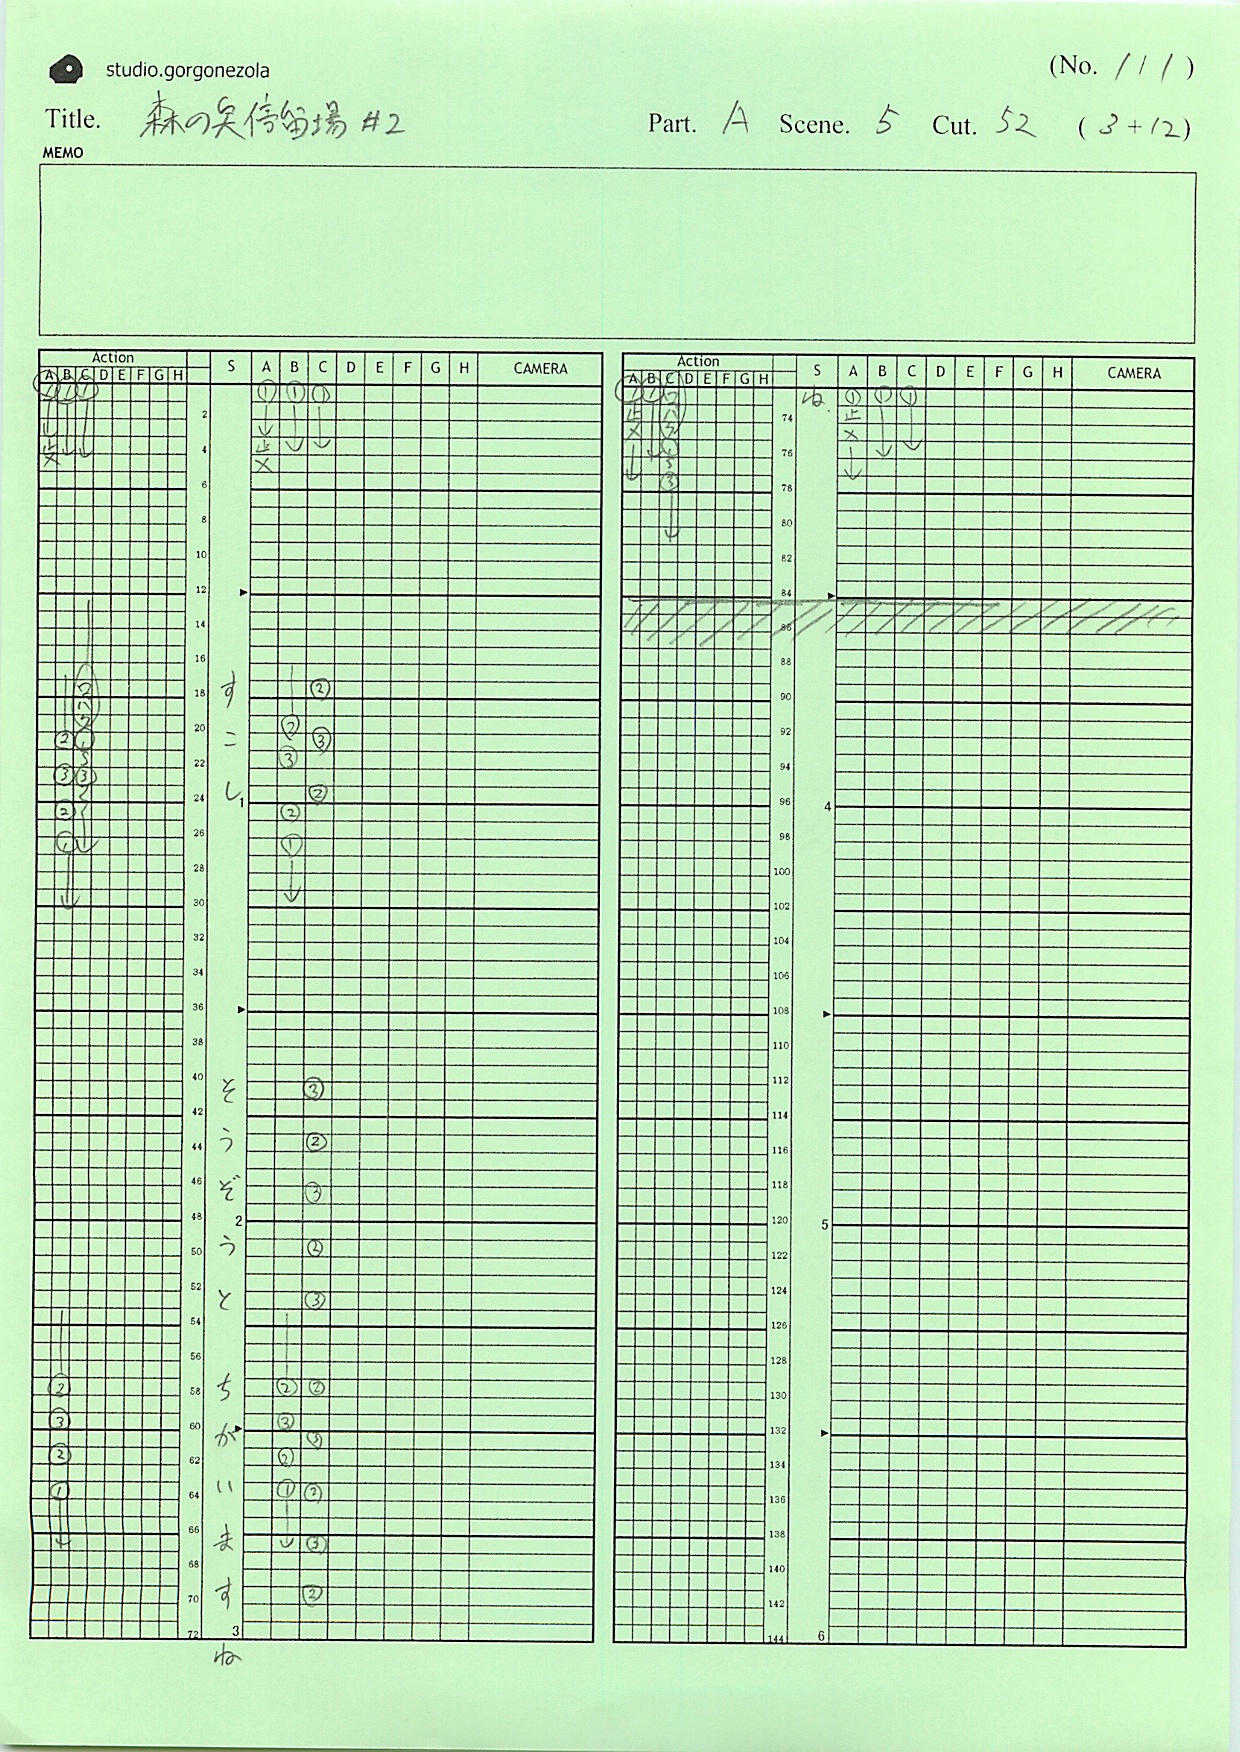 studio.gorgonezola
(No. 1/1)
Title. 森の 停留場 #2 Part. A Scene. 5 Cut. 52 (3+12)
MEMO
Action S A B C D E F G H CAMERA
A B C D E F G H
① ① ① ① ① ①
2
4 止
× ×
6
8
10
12
14
16
18 す ②
20 ② こ ② ③
22 ③ ③ ③
24 し 1 ②
② ②
26 ① ①
28
30
32
34
36
38
40 そ ③
42
44 う ②
46 ぞ ③
48 2
50 う ②
52 と ③
54
56
58 ② ち ② ②
60 ③ が ③ ③
62 ② ②
64 ① い ① ②
66 ま ③
68
70 す ②
72 3
ね
Action S A B C D E F G H CAMERA
A B C D E F G H
① ① ね ① ① ①
74 止 止
× ×
76
78 ③
80
82
84
86
88
90
92
94
96 4
98
100
102
104
106
108
110
112
114
116
118
120 5
122
124
126
128
130
132
134
136
138
140
142
144 6